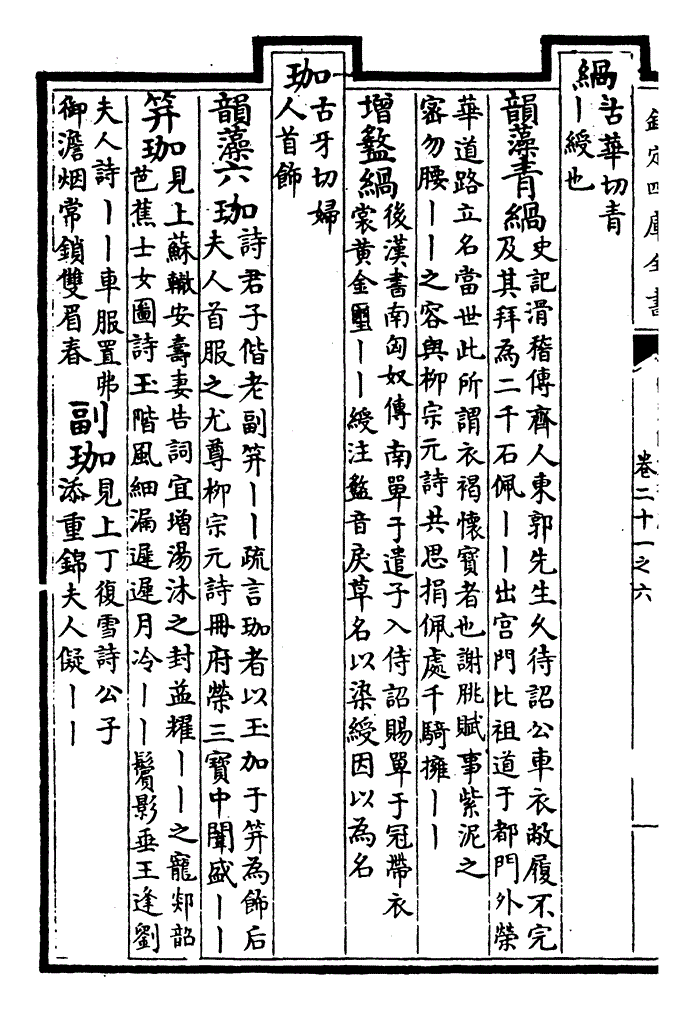 欽定四庫全書
卷二十一之六
緺
古華切青
丨綬也
韻藻青緺
史記滑稽傳齊人東郭先生久待詔公車衣敝履不完
及其拜為二千石佩丨丨出宫門比祖道于都門外榮
華道路立名當世此所謂衣褐懷寳者也謝朓賦事紫泥之
宻勿腰丨丨之容與柳宗元詩共思捐佩處千騎擁丨丨
增盭緺
後漢書南匈奴傳南單于遣子入侍詔賜單于冠帶衣
裳黄金璽丨丨綬注盭音戾草名以染綬因以為名
珈
古牙切婦
人首飾
韻藻六珈
詩君子偕老副笄丨丨疏言珈者以玉加于笄為飾后
夫人首服之尤尊柳宗元詩冊府榮三寳中闈盛丨丨
笄珈
見上蘇轍安壽妻告詞宜增湯沐之封益耀丨丨之寵郯韶
芭蕉士女圖詩玉階風細漏遲遲月冷丨丨鬢影垂王逢劉
夫人詩丨丨車服置弗
御澹烟常鎖雙眉春
副珈
見上丁復雪詩公子
添重錦夫人儗丨丨